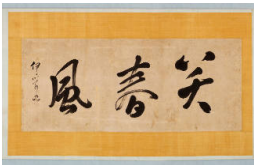 笑春風